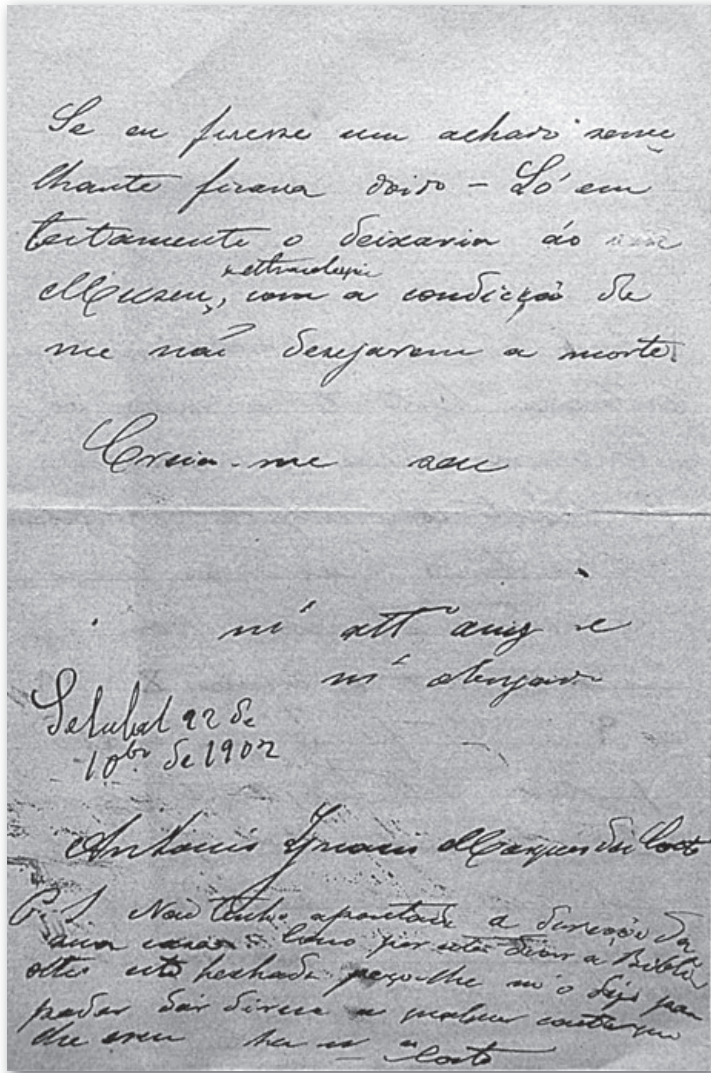 Se eu fizesse um achado seme
lhante ficava doido – Só em
testamento o deixaria ao
Museu, com a condicção de
me não desejarem a morte.
Creia-me seu
mº attº amigº e
mº obrigado
Setubal 22 de
10bro de 1902
Antonio Ignacio Marques da Costa
P.S. Não tenho apontada a direcção da
sua casa. Como por estes dias a Biblio
esta fechada peço-lhe m'o diga para
poder dar
Costa